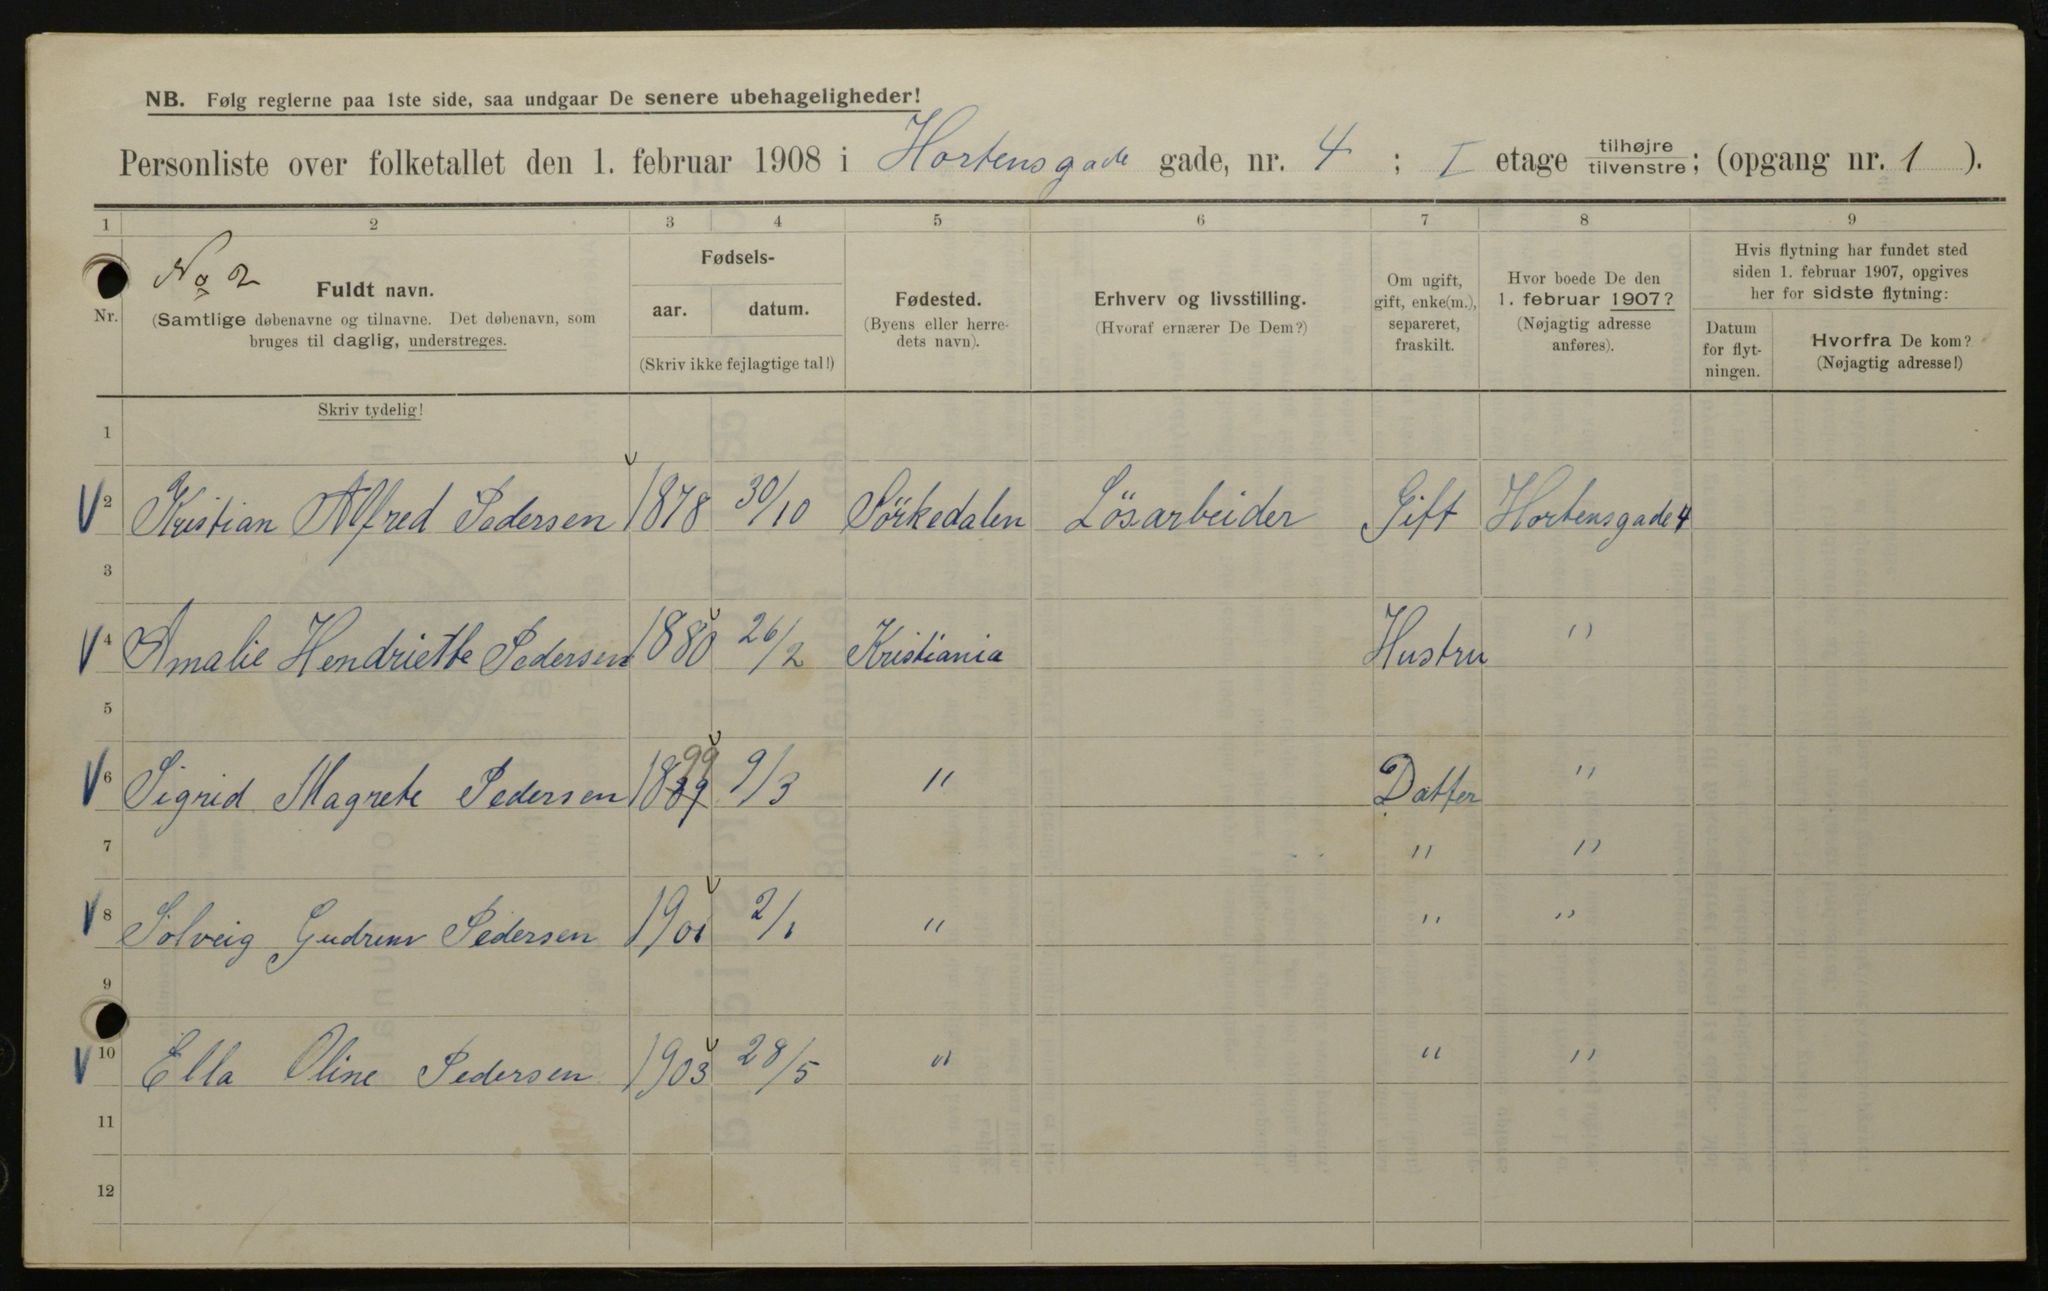 NB. Følg reglerne paa 1ste side, saa undgaar De senere ubehageligheder!
Personliste over folketallet den 1. februar 1908 i Hortensgade gade, nr. 4 ; I etage tilhøjre/tilvenstre; (opgang nr. 1 ).
1 2 3 4 5 6 7 8 9
No 2
Nr.
Fuldt navn.
(Samtlige døbenavne og tilnavne. Det døbenavn, som
bruges til daglig, understreges.
Fødsels-
aar. datum.
(Skriv ikke fejlagtige tal!)
Fødested.
(Byens eller herre-
dets navn).
Erhverv og livsstilling.
(Hvoraf ernærer De Dem?)
Om ugift,
gift, enke(m.),
separeret,
fraskilt.
Hvor boede De den
1. februar 1907?
(Nøjagtig adresse
anføres).
Hvis flytning har fundet sted
siden 1. februar 1907, opgives
her for sidste flytning:
Datum
for flyt-
ningen.
Hvorfra De kom?
(Nøjagtig adresse!)
Skriv tydelig!
1
2 Kristian Alfred Pedersen 1878 30/10 Sörkedalen Lösarbeider Gift Hortensgade 4
3
4 Amalie Henriette Pedersen 1880 26/2 Kristiania Hustru "
5
6 Sigrid Magrete Pedersen 1889 99 9/3 " Datter "
7 " "
8 Solveig Gudrun Pedersen 1901 2/1 " " "
9
10 Ella Oline Pedersen 1903 28/5 " " "
11
12